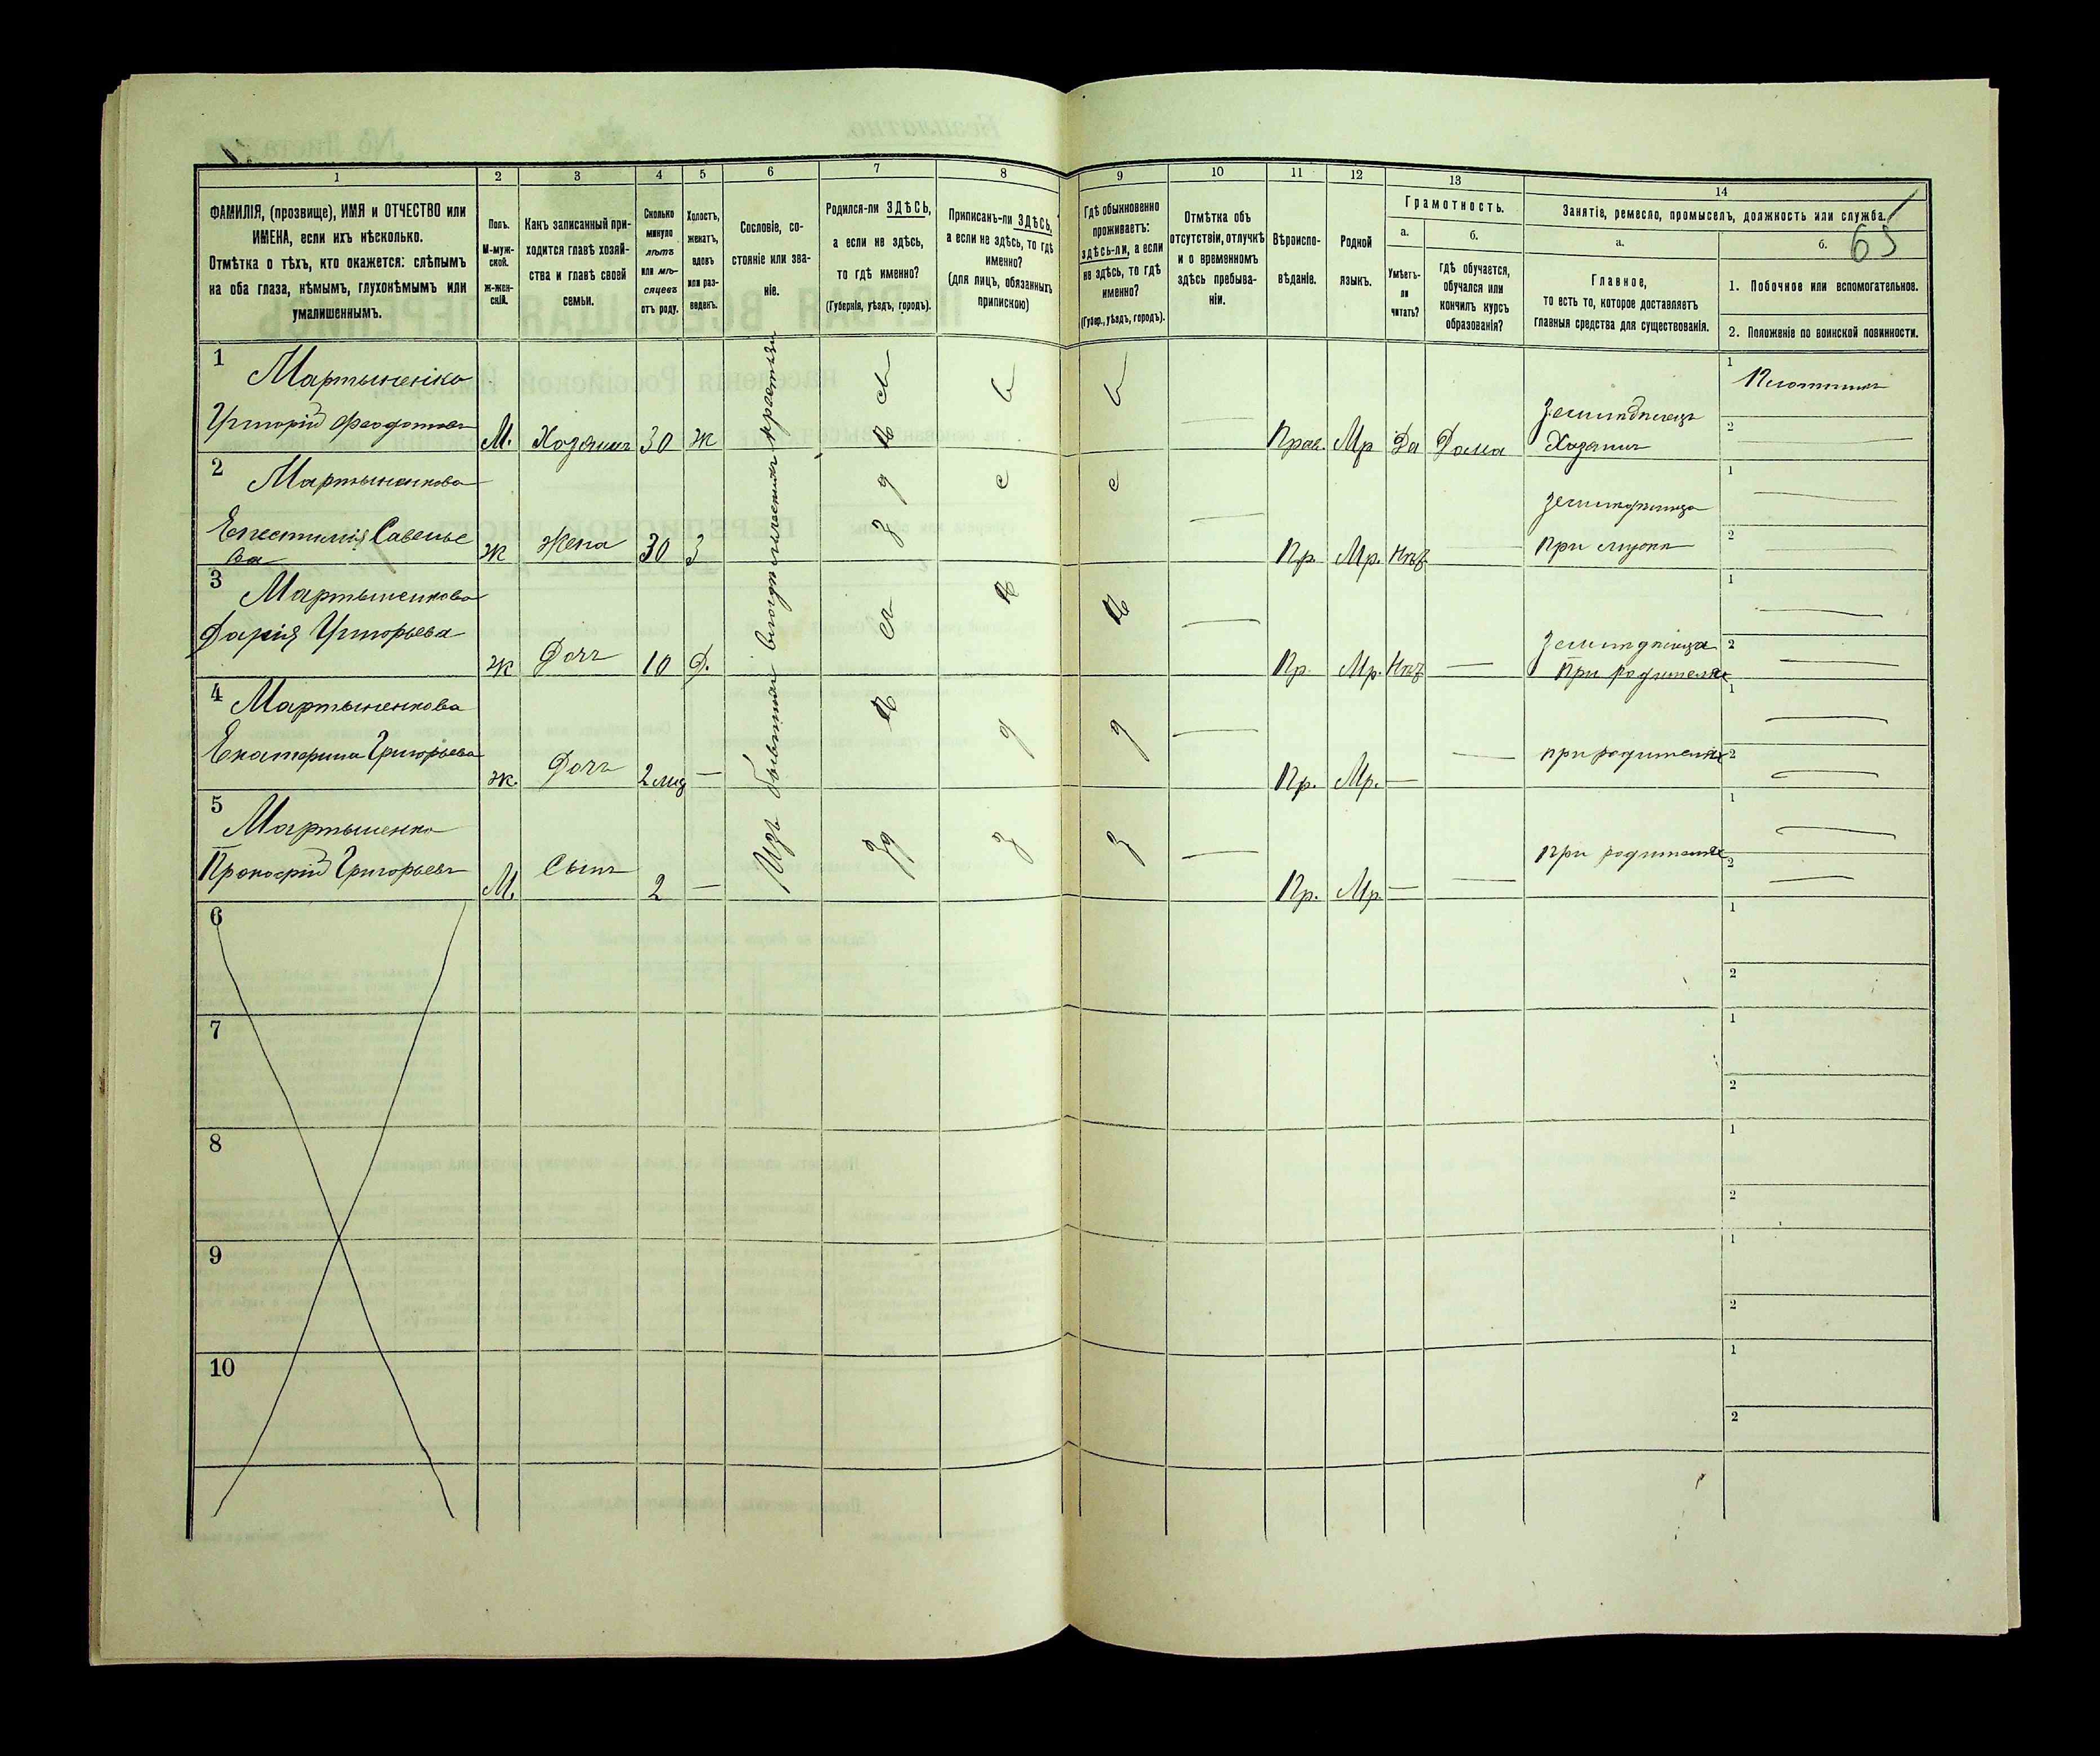 1 2 3 4 5 6 7 8 9 10 11 12 13 14
ФАМИЛІЯ, (прозвище), ИМЯ и ОТЧЕСТВО или
ИМЕНА, если ихъ нѣсколько.
Отмѣтка о тѣхъ, кто окажется: слѣпымъ
на оба глаза, нѣмымъ, глухонѣмымъ или
умалишеннымъ.
Полъ.
М-муж-
ской.
ж-жен-
скій.
Какъ записанный при-
ходится главѣ хозяй-
ства и главѣ своей
семьи.
Сколько
минуло
лѣтъ
или мѣ-
сяцевъ
отъ роду.
Холостъ,
женатъ,
вдовъ
или раз-
веденъ.
Сословіе, со-
стояніе или зва-
ніе.
Родился-ли ЗДѢСЬ,
а если не здѣсь,
то гдѣ именно?
(Губернія, уѣздъ, городъ).
Приписанъ-ли ЗДѢСЬ,
а если не здѣсь, то гдѣ
именно?
(для лицъ, обязанныхъ
припискою)
Гдѣ обыкновенно
проживаетъ:
здѣсь-ли, а если
не здѣсь, то гдѣ
именно?
(Губер., уѣздъ, городъ).
Отмѣтка объ
отсутствіи, отлучкѣ
и о временномъ
здѣсь пребыва-
ніи.
Вѣроиспо-
вѣданіе.
Родной
языкъ.
Грамотность.
а.
Умѣетъ-
ли
читать?
б.
гдѣ обучается,
обучался или
кончилъ курсъ
образованія?
Занятіе, ремесло, промыселъ, должность или служба.
65
а.
Главное,
то есть то, которое доставляетъ
главныя средства для существованія.
б.
1. Побочное или вспомогательное.
2. Положеніе по воинской повинности.
Изъ бывшихъ крестьян
1 Мартыненко
Григорій Феодотовъ М. Хозяинъ 30 Ж здѣсь Прав. Мр Да Дома
Хозяинъ
1
2
2 Мартыненкова
Савелье
ва ж Жена 30 З здѣсь Пр. Мр. Нѣт
При мужѣ
1
2
3 Мартыненкова
Дарія Григорьева ж Дочь 10 Д. Пр. Мр. Нѣт
при родителяхъ
1
2
4 Мартыненкова
Екатерина Григорьева ж. Дочь 2 мц Пр. Мр. при родителяхъ
1
2
5 Мартыненко
Прокофій Григорьевъ М. Сынъ 2 Пр. Мр. При родителяхъ
1
2
6
1
2
7
1
2
8
1
2
9
1
2
10
1
2